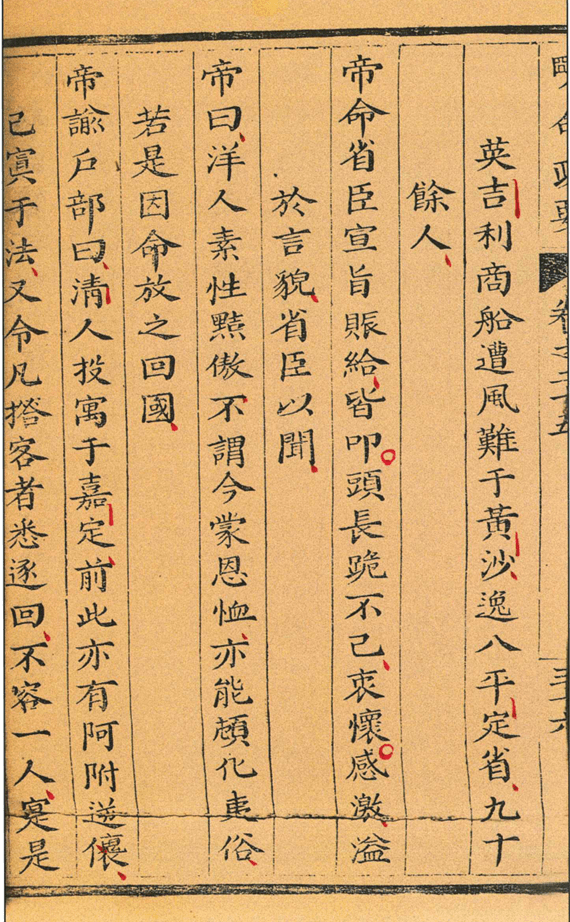 明命政要 卷之二十五 三十六
英吉利商船遭風難于黃沙逸八平定省九十
餘人
帝命省臣宣旨賑給皆叩頭長跪不已衷懷感激溢
於言貌省臣以聞
帝曰洋人素性黠傲不謂今蒙恩恤亦能頓化夷俗
若是因命放之回國
帝諭戶部曰清人投寓于嘉定前此亦有阿附逆儴
已寘于法又令凡搭客者悉逐回不容一人寔是